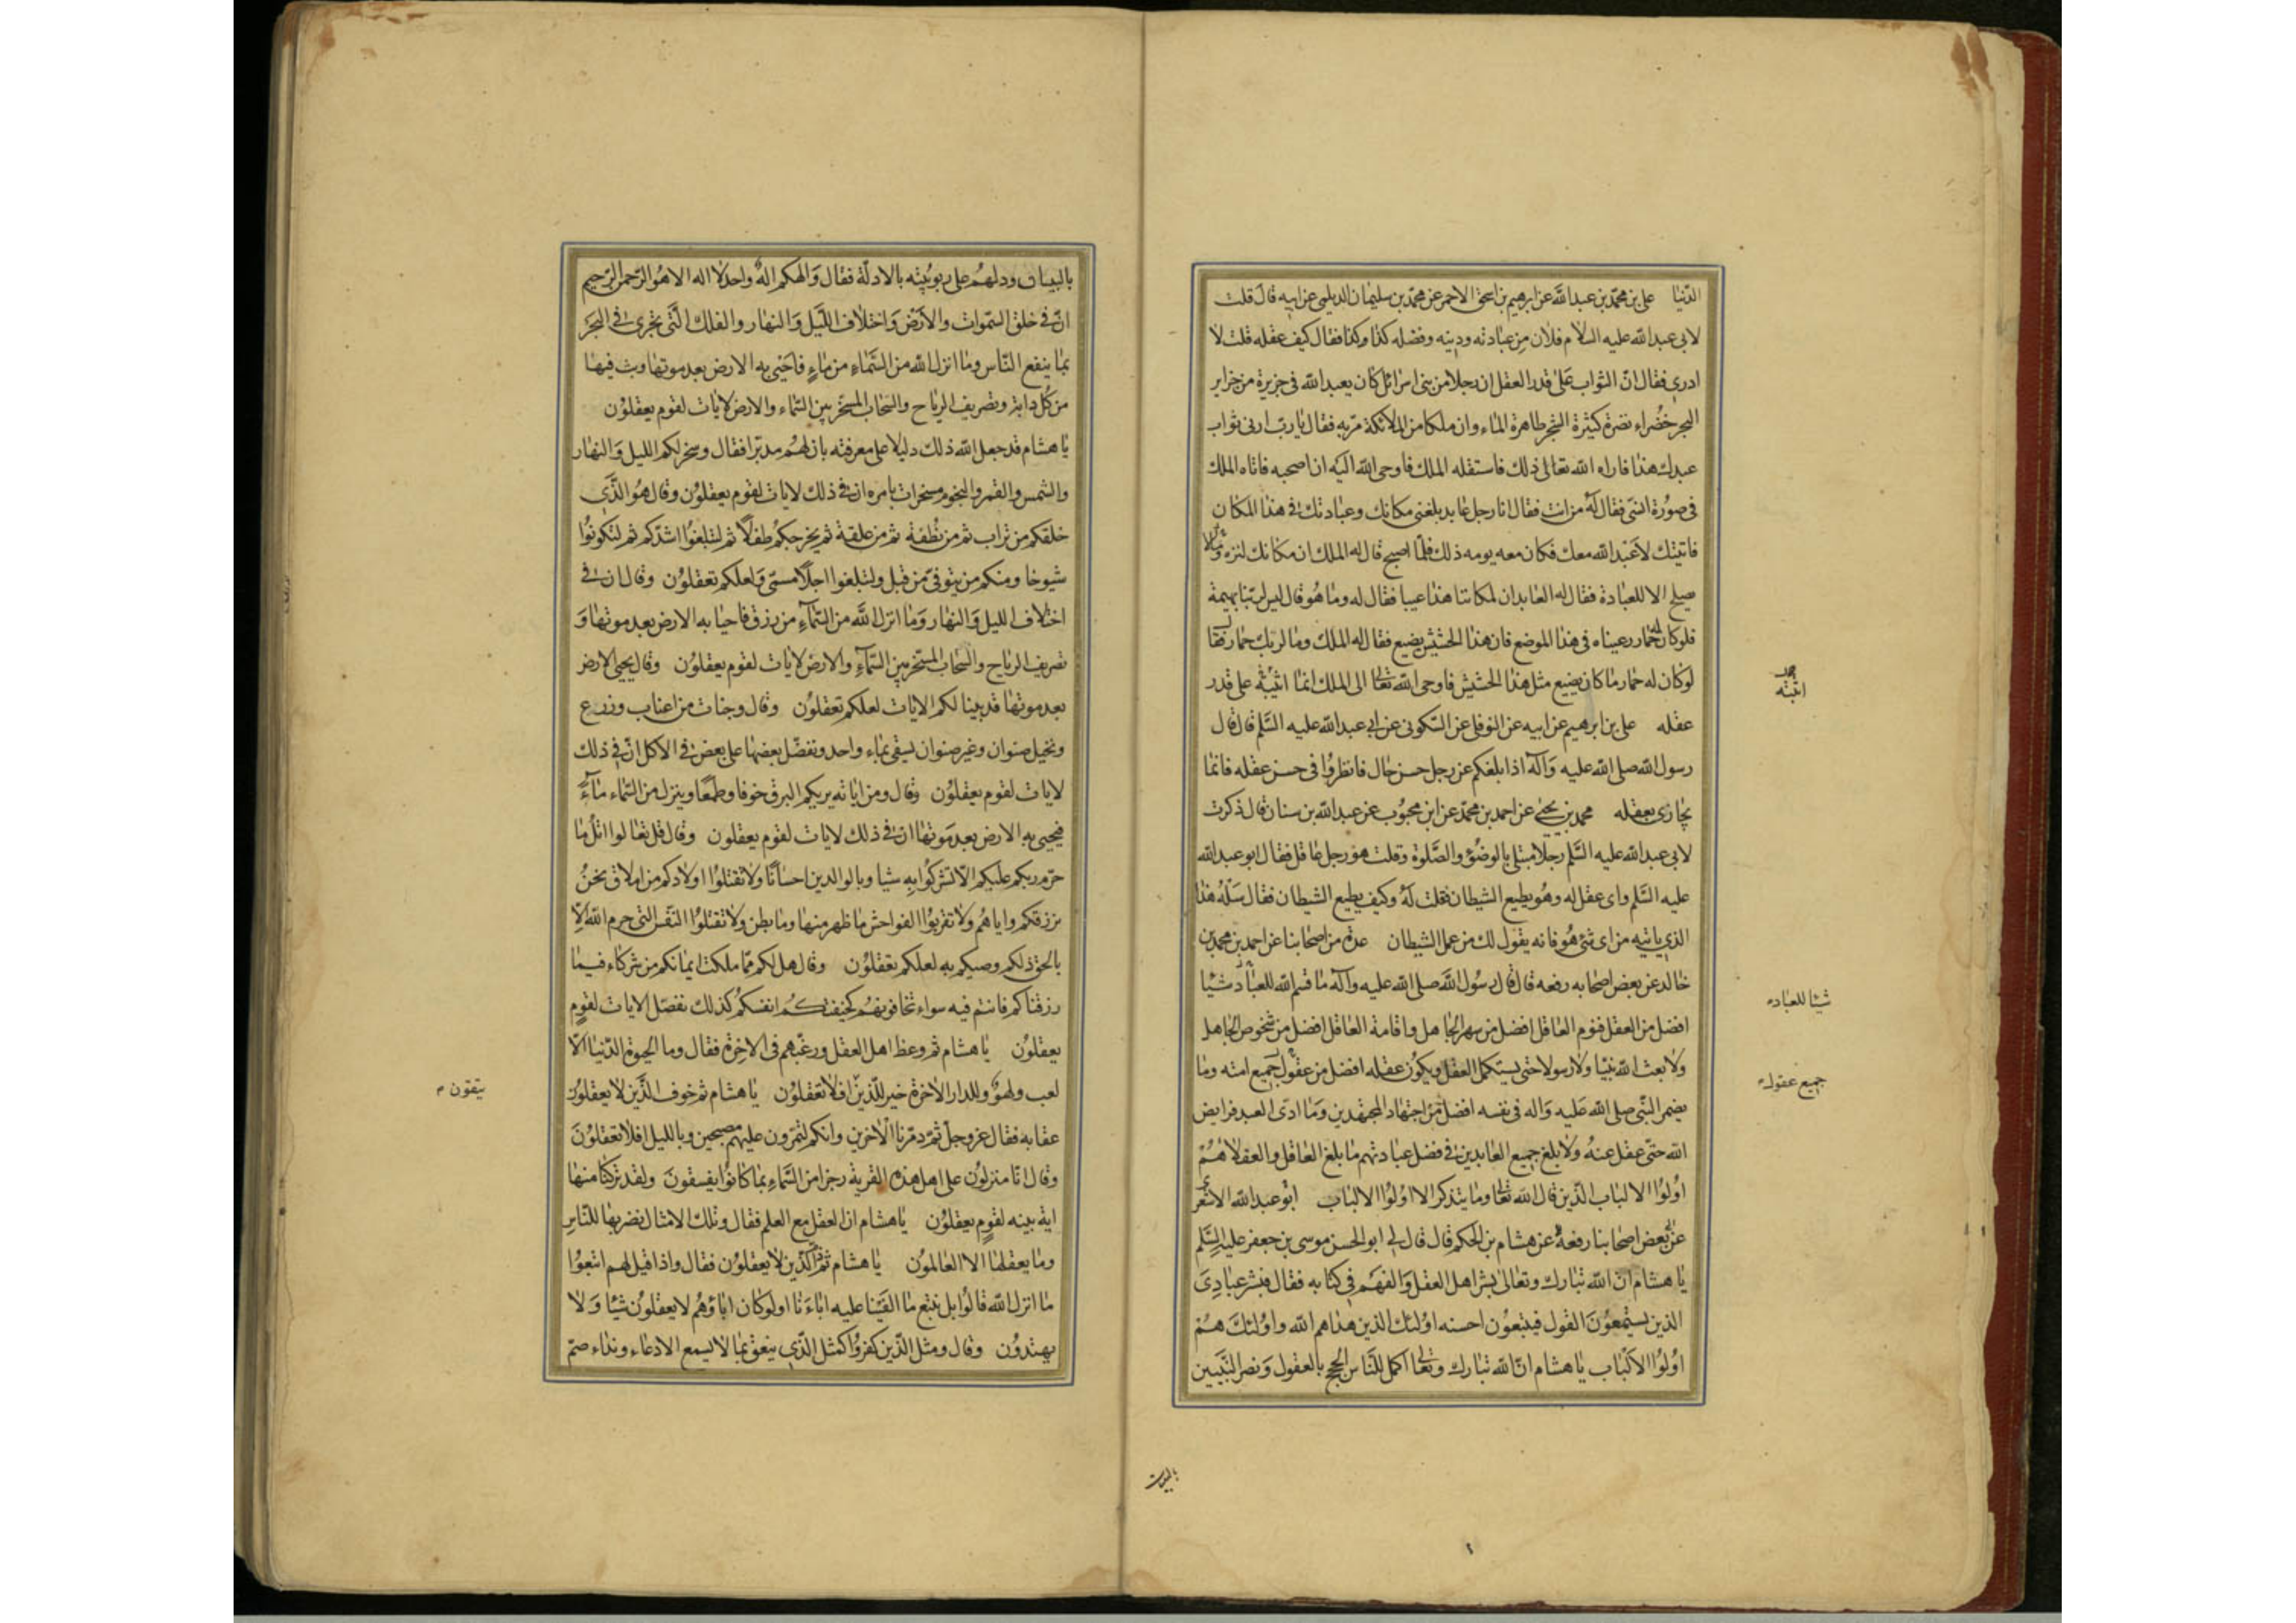 الدّنيا علی بن محمّد بن عبدالله عن ابرهیم بن اسحق الاحمر عن محمّد بن سلیمان الدیلمی عن ابیه قال قلت
لابی عبدالله علیه السلام فلان من عبادته ودینه وفضله کذا وکذا فقال کیف عقله قلت لا
ادری فقال انّ الثواب علی قدر العقل ان رجلا من بنی اسرائل کان یعبد الله فی جزیرة من جزایر
البحر خضراء نضرة کثیرة الشجر طاهرة الماء وان ملکا من الملائکة مرّ به فقال یا ربّ ارنی ثواب
عبدک هذا فاراه الله تعالی ذلک فاستقله الملک فاوحی الله الیه ان اصحبه فاتاه الملک
فی صورة انسیّ فقال له من انت فقال انا رجل عابد بلغنی مکانک وعبادتک فی هذا المکان
فاتیتک لاعبد الله معک فکان معه یومه ذلک فلمّا اصبح قال له الملک ان مکانک لنزه وما
یصلح الا للعبادة فقال له العابد ان لمکاننا هذا عیبا فقال له وما هو قال لیس لربّنا بهیمة
فلو کان له حمار رعیناه فی هذا الموضع فان هذا الحشیش یضیع فقال له الملک وما لربک حمار فقا
لو کان له حمار ما کان یضیع مثل هذا الحشیش فاوحی الله تعالی الی الملک انما اثیبه علی قدر
عقله علی بن ابرهیم عن ابیه عن النوفلی عن السّکونی عن ابی عبدالله علیه السّلم قال قال
رسول الله صلی الله علیه وآله اذا بلغکم عن رجل حسن حال فانظروا فی حسن عقله فانما
یجازی بعقله محمد بن یحیی عن احمد بن محمّد عن ابن محبوب عن عبدالله بن سنان قال ذکرت
لابی عبدالله علیه السّلم رجلا مبتلی بالوضوء والصّلوة وقلت هو رجل عاقل فقال ابو عبدالله
علیه السّلم وای عقل له وهو یطیع الشیطان فقلت له وکیف یطیع الشیطان فقال سله هذا
الذی یاتیه من ای شئ هو فانه یقول لک من عمل الشیطان عدة من اصحابنا عن احمد بن محمد بن
خالد عن بعض اصحابه رفعه قال قال رسول الله صلی الله علیه وآله ما قسم الله للعباد شیئا
افضل من العقل فنوم العاقل افضل من سهر الجاهل واقامة العاقل افضل من شخوص الجاهل
ولا بعث الله نبیّا ولا رسولا حتی یستکمل العقل ویکون عقله افضل من عقول جمیع امته وما
یضمر النّبی صلی الله علیه وآله فی نفسه افضل من اجتهاد المجتهدین وما ادی العبد فرایض
الله حتّی عقل عنه ولا بلغ جمیع العابدین فی فضل عبادتهم ما بلغ العاقل والعقلاء هم
اولوا الالباب الّذین قال الله تعالی وما یتذکر الا اولوا الالباب ابو عبدالله الاشعر
عن بعض اصحابنا رفعه عن هشام بن الحکم قال قال لی ابو الحسن موسی بن جعفر علیه السّلم
یا هشام انّ الله تبارک وتعالی بشر اهل العقل والفهم فی کتابه فقال فبشر عبادی
الذین یستمعون القول فیتبعون احسنه اولئک الذین هداهم الله واولئک هم
اولوا الالباب یا هشام انّ الله تبارک وتعالی اکمل للنّاس الحجج بالعقول ونصر النّبیین
اثیبه
شیئا للعباد
جمیع عقول
بالبیان
بالبیان ودلهم علی ربوبیّته بالادلّة فقال والهکم اله واحد لا اله الا هو الرّحمن الرّحیم
انّ فی خلق السّموات والارض واختلاف اللّیل والنهار والفلک الّتی تجری فی البحر
بما ینفع النّاس وما انزل الله من السّماء من ماء فاحیی به الارض بعد موتها وبث فیها
من کل دابة وتصریف الریاح والسّحاب المسخّر بین السّماء والارض لایات لقوم یعقلون
یا هشام قد جعل الله ذلک دلیلا علی معرفته بان لهم مدبّرا فقال وسخر لکم اللیل والنهار
والشمس والقمر والنجوم مسخرات بامره ان فی ذلک لایات لقوم یعقلون وقال هو الّذی
خلقکم من تراب ثم من نطفة ثم من علقة ثم یخرجکم طفلا ثم لتبلغوا اشدّکم ثم لتکونوا
شیوخا ومنکم من یتوفیّ من قبل ولتبلغوا اجلا مسمّی ولعلکم تعقلون وقال ان فی
اختلاف اللیل والنهار وما انزل الله من السّماء من رزق فاحیا به الارض بعد موتها و
تصریف الریاح والسّحاب المسخّر بین السّماء والارض لایات لقوم یعقلون وقال یحیی الارض
بعد موتها قد بینا لکم الایات لعلکم تعقلون وقال وجنات من اعناب وزرع
ونخیل صنوان وغیر صنوان یسقی بماء واحد ونفضّل بعضها علی بعض فی الاکل انّ فی ذلک
لایات لقوم یعقلون وقال ومن ایاته یریکم البرق خوفا وطمعا وینزل من السّماء ماء
فیحیی به الارض بعد موتها ان فی ذلک لایات لقوم یعقلون وقال قل تعالوا اتل ما
حرّم ربکم علیکم الّا تشرکوا به شیئا وبالوالدین احسانا ولا تقتلوا اولادکم من املاق نحن
نرزقکم وایاهم ولا تقربوا الفواحش ما ظهر منها وما بطن ولا تقتلوا النّفس التی حرم الله الّا
بالحق ذلکم وصیکم به لعلکم تعقلون وقال هل لکم ممّا ملکت ایمانکم من شرکاء فیما
رزقناکم فانتم فیه سواء تخافونهم کخیفتکم انفسکم کذلک نفصّل الایات لقوم
یعقلون یا هشام ثم وعظ اهل العقل ورغّبهم فی الاخرة فقال وما الحیوة الدّنیا الّا
لعب ولهو وللدار الاخرة خیر للّذین افلا تعقلون یا هشام ثم خوف الّذین لا یعقلون
عقابه فقال عزوجلّ ثمّ دمّرنا الاخرین وانکم لتمرّون علیهم مصبحین وباللیل افلا تعقلون
وقال انا منزلون علی اهل هذه القریة رجزا من السّماء بما کانوا یفسقون ولقد ترکنا منها
ایة بینه لقوم یعقلون یا هشام ان العقل مع العلم فقال وتلک الامثال نضربها للنّاس
وما یعقلها الا العالمون یا هشام ثمّ ذمّ الّذین لا یعقلون فقال واذا قیل لهم اتبعوا
ما انزل الله قالوا بل نتبع ما الفینا علیه اباءنا اولو کان اباؤهم لا یعقلون شیئا ولا
یهتدون وقال ومثل الّذین کفروا کمثل الّذی ینعق بما لا یسمع الا دعاء ونداء صمّ
یتقون م